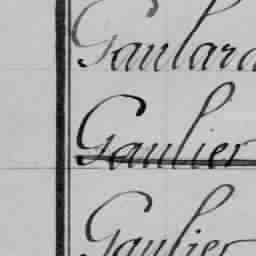 Gaulard
Gaulier
Gaulier